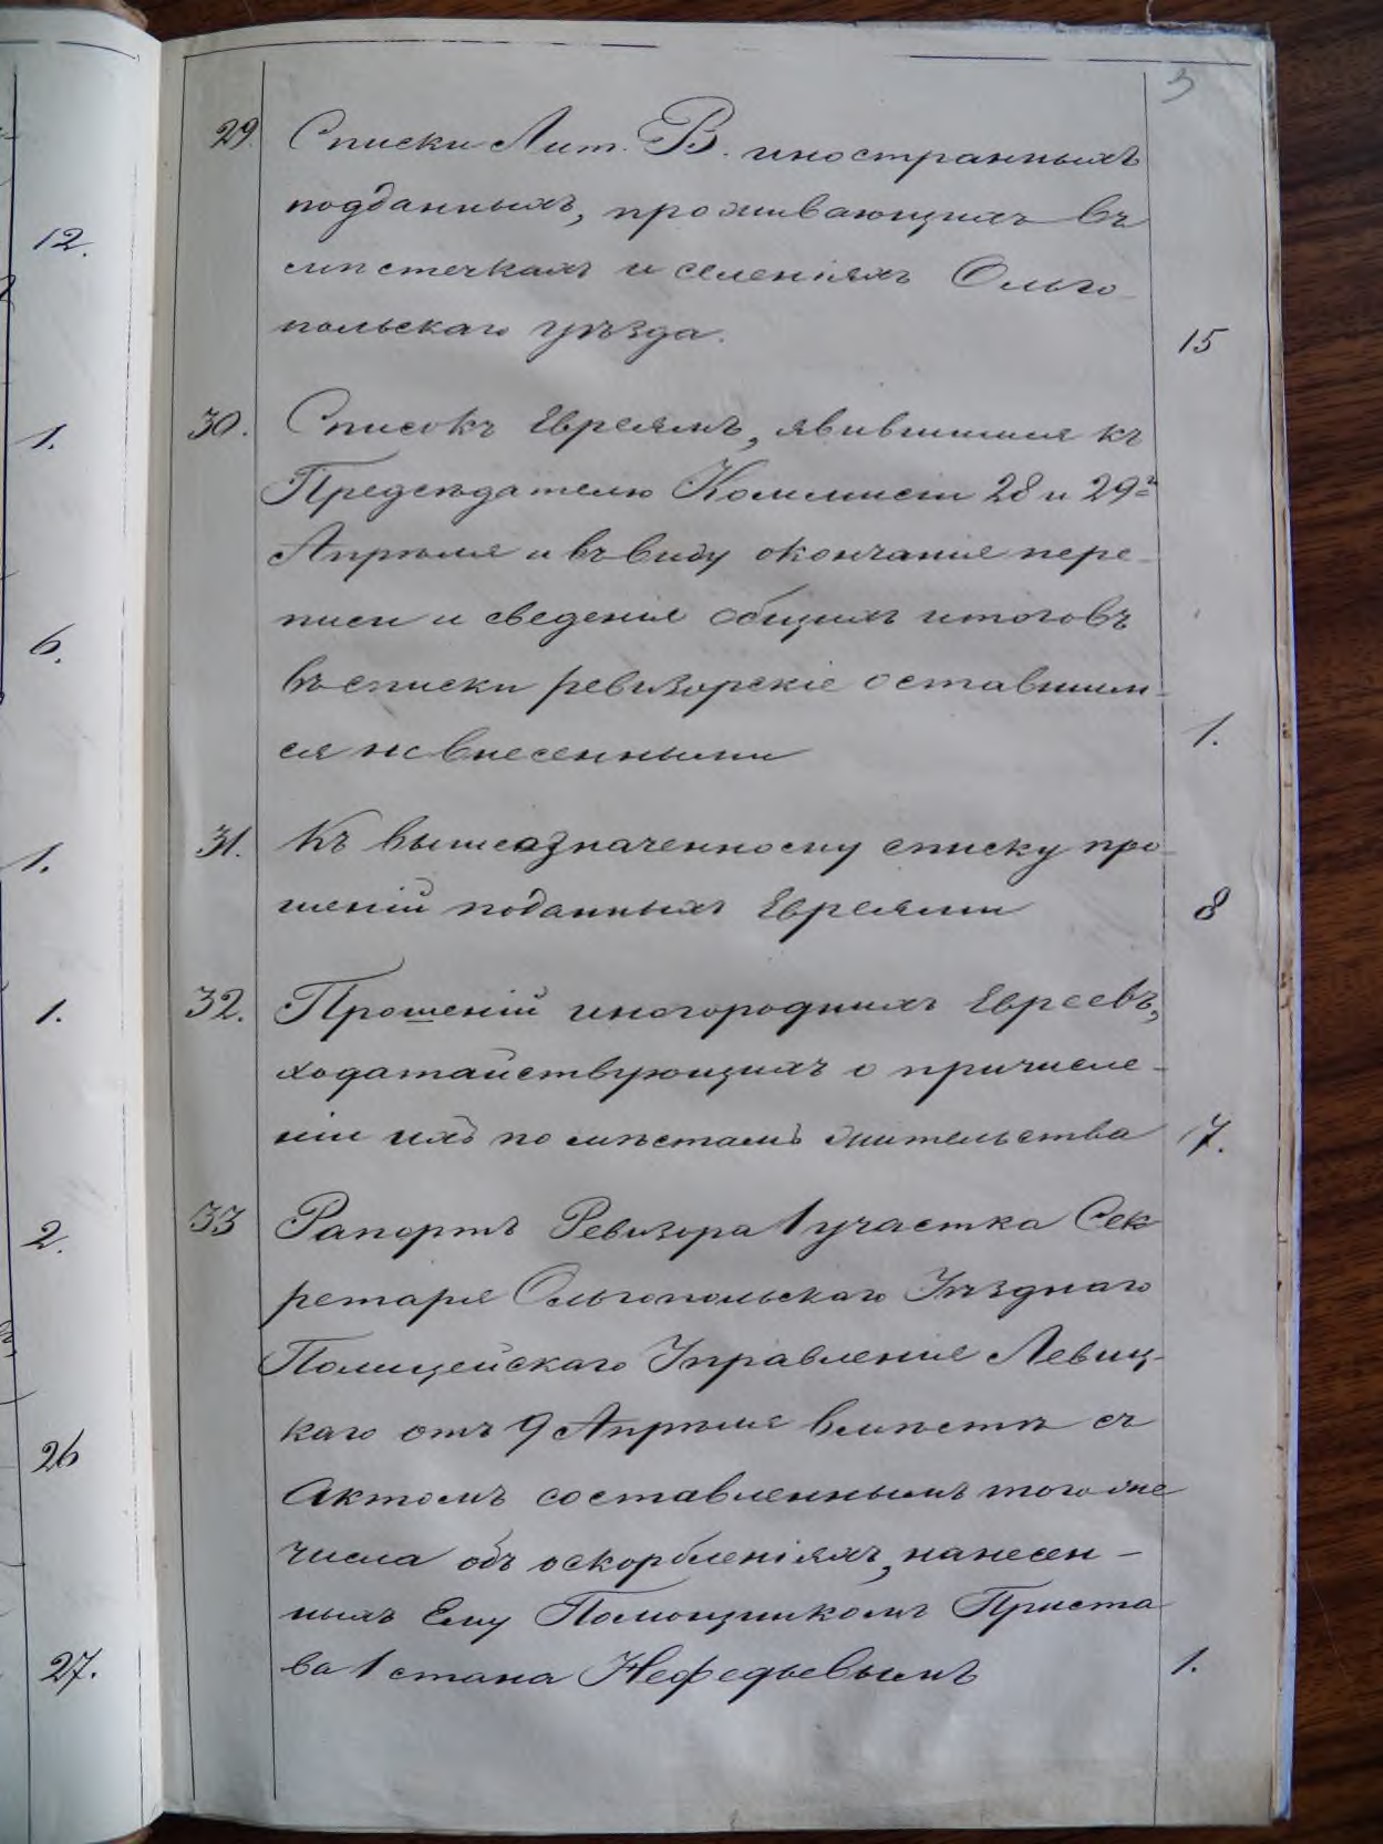 3
29. Списки Лит. В. иностранныхъ
подданныхъ, проживающихъ въ
мѣстечкахъ и селеніяхъ Ольго-
польскаго уѣзда. 15
12.
30. Списокъ Евреямъ, явившимся къ
1.
Предсѣдателю Коммисіи 28 и 29го
Апрѣля и въ виду окончанія пере-
писи и сведенія общихъ итоговъ
6.
въ списки ревизорскіе оставшим-
ся не внесенными 1.
31. Къ вышеозначенному списку про-
1.
шеній поданныхъ Евреями 8
32. Прошеній иногороднихъ Евреевъ,
1.
ходатайствующихъ о причисле-
ніи ихъ по мѣстамъ жительства 17.
33 Рапортъ Ревизора 1 участка Сек-
2.
ретаря Ольгопольскаго Уѣзднаго
Полицейскаго Управленія Левиц-
каго отъ 9 Апрѣля вмѣстѣ съ
26
Актомъ составленнымъ того же
числа объ оскорбленіяхъ, нанесен-
ныхъ Ему Помощникомъ Приста-
ва 1 стана Нефедьевымъ 1.
27.